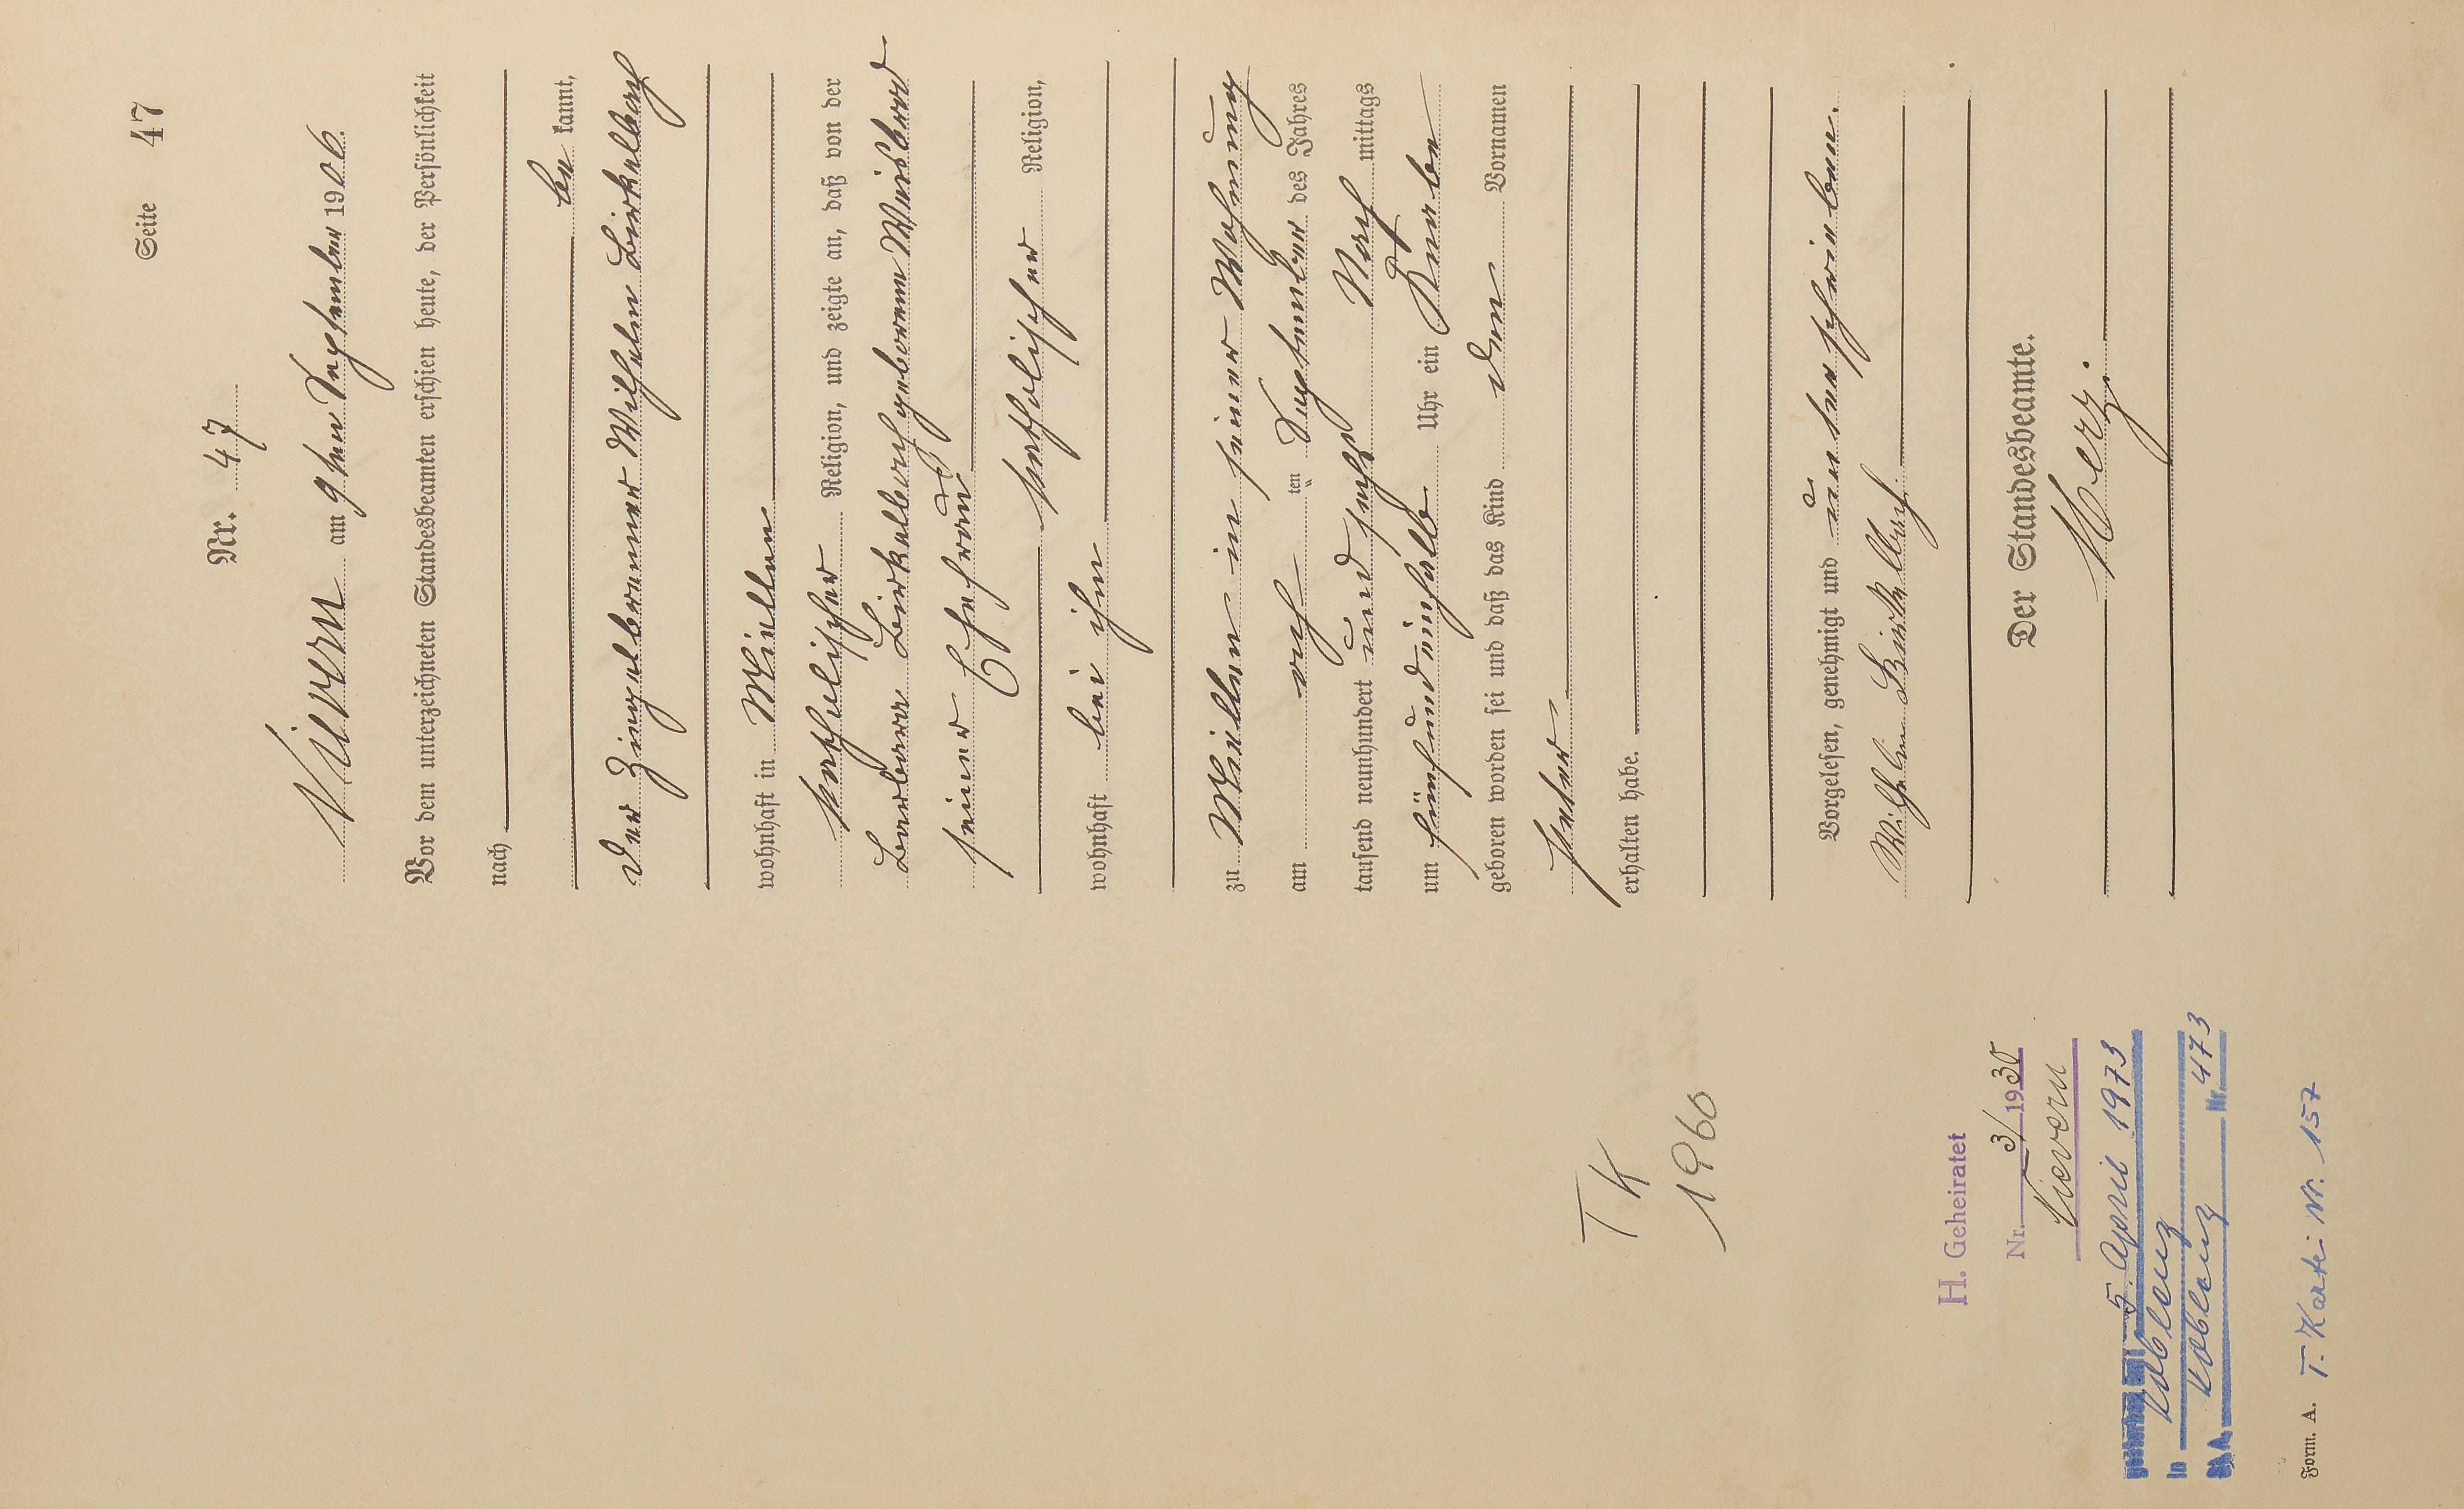 Seite 47
Nr. 47
Nievern am 9ten September 1906.
Vor dem unterzeichneten Standesbeamten erschien heute, der Persönlichkeit
nach
be kannt,
der Ziegelbrenner Wilhelm Birkelbach
wohnhaft in Miellen
katholischer Religion, und zeigte an, daß von der
Barbara Birkelbach geborenen
seiner Ehefrau
katholischer Religion,
wohnhaft bei ihm
zu Miellen in seiner Wohnung
am acht ten September des Jahres
tausend neunhundert und sechs Nach mittags
um fünfundeinhalb Uhr ein Knabe
geboren worden sei und daß das Kind den Vornamen
Peter
erhalten habe.
Vorgelesen, genehmigt und unterschrieben.
Wilhelm Birkelbach
Der Standesbeamte.
TK
1960
H. Geheiratet
Nr. 3/1930
Nievern
gestorben am 5. April 1973
in Koblenz
St.A. Koblenz Nr. 473
Form. A. T.-Kartei Nr. 157